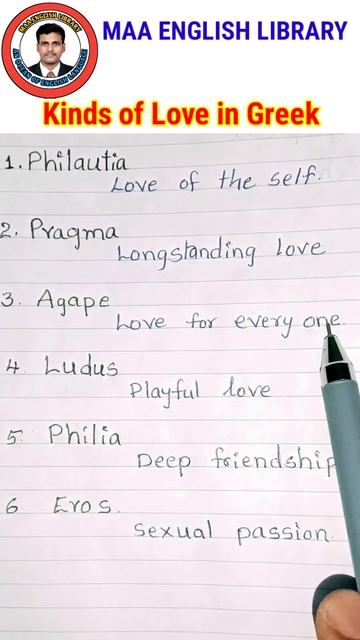 MAA ENGLISH LIBRARY
MAA ENGLISH LIBRARY
AN OCEAN OF ENGLISH LANGUAGE
Kinds of Love in Greek
1. Philautia
Love of the self.
2. Pragma
Longstanding love
3. Agape
Love for every one.
4 Ludus
Playful love
5 Philia
Deep friendship
6 Eros.
Sexual passion.